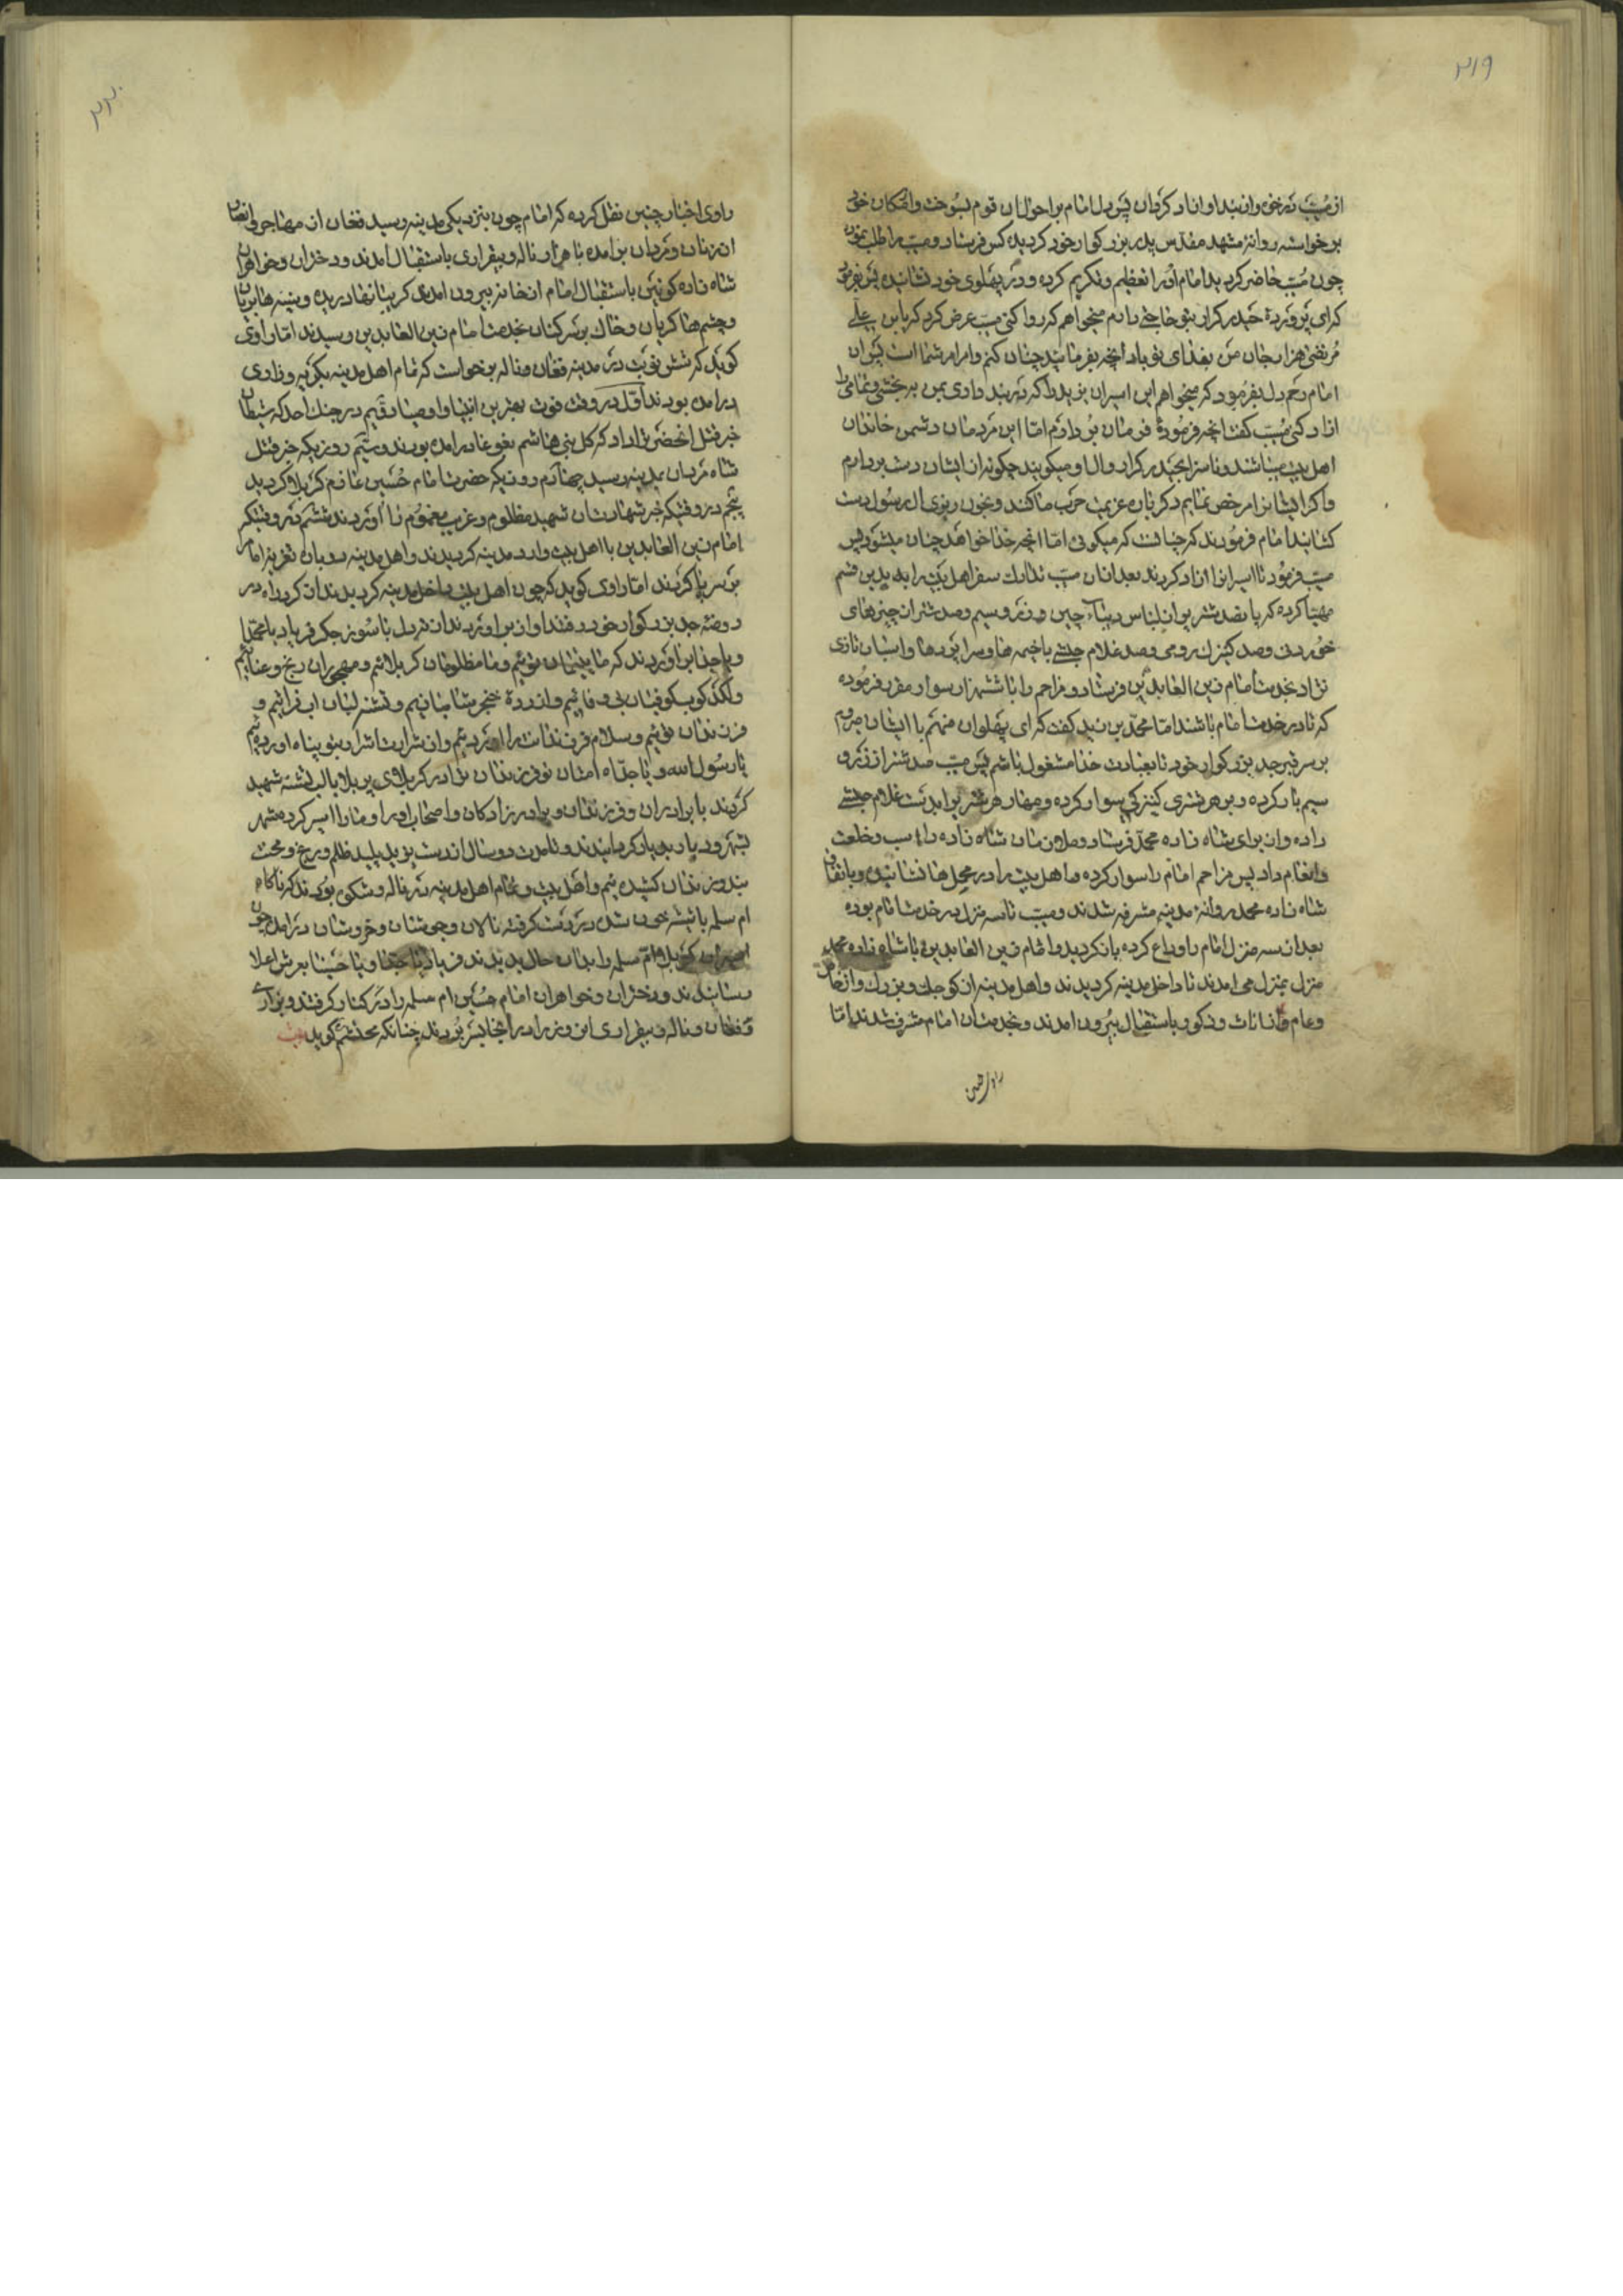 ۲۱۹
از مسیّب نرخی و ازبند او آزاد کردان پس دل امام بر احوال آن قوم بسوخت و اشکان خود
برخواسته روانهٔ مشهد مقدس پدر بزرکوار خود کردیده کس فرستاد و مسیب را طلب نمود
چون مسیب حاضر کردید امام او را تعظیم و تکریم کرده و در پهلوی خود نشانیده پس فرمود
که ای پروردهٔ حیدر کرار بتو حاجتی دارم میخواهم که روا کنی مسیب عرض کرد که یابن علی
مرتضی هزار جان من بفدای تو باد آنچه بفرمائید چنان کنم و امر امر شما است پس آن
امام رحم دل بفرمود که میخواهم این اسیران یزید را که در بند داری بمن به بخشی و تمامی را
ازاد کنی مسیب کفت آنچه فرمودهٔ فرمان بردارم امّا این مردمان دشمن خاندان
اهل بیت میباشند و ناسزا بحیدر کرار و ال او میکویند چکونه از ایشان دست بردارم
و اکر ایشانرا مرخص نمایم دکر باره عزیمت حرب ما کنند و بخون ریزی ال رسول دست
کشایند امام فرمودند که چنانست که میکوئی امّا آنچه خدا خواهد چنان میشود پس
مسیب فرمود تا اسیرانرا ازاد کردند بعد ازان مسیب تدارک سفر اهل بیت را بدین قسم
مهیّا کرده که پانصد شتر پر از لباس دیبای چین و زر و سیم و صد شتر از چیزهای
خوردنی و صد کنیزک رومی و صد غلام حبشی با خیمه ها و سراپرده ها و اسبان تازی
نژاد بخدمت امام زین العابدین فرستاد و مزاحم را با ششهزار سوار مقرر فرموده
که تا در خدمت امام باشند امّا محمد بن زید کفت که ای پهلوان منهم با ایشان میروم
بر سر قبر جد بزرکوار خود تا بعبادت خدا مشغول باشم پس مسیب صد شتر از زر و
سیم بار کرده و بر هر شتری کنیزکی سوار کرده و مهار هر شتر برا بدست غلام حبشی
داده و از برای شاه زاده محمد فرستاد و ملازمان شاه زاده را اسب و خلعت
و انعام داد پس مزاحم امام را سوار کرده و اهل بیت را در محملها نشانیده و باتفاق
شاه زاده محمد روانهٔ مدینه مشرفه شدند و مسیب تا سه منزل در خدمت امام بوده
بعد از سه منزل امام را وداع کرده باز کردید و امام زین العابدین با شاه زاده محمد
منزل بمنزل می امدند تا داخل مدینه کردیدند و اهل مدینه از کوچک و بزرک و از خاص
و عام و اناث و ذکور باستقبال بیرون امدند و بخدمت ان امام مشرف شدند امّا
۲۲۰
راوی اخبار چنین نقل کرده که امام چون بنزدیکی مدینه رسید فغان از مهاجر و انصار
از زنان و مردان برآمده با هزار ناله و بیقراری باستقبال امدند و دختران و خواهران
شاه زاده کونین باستقبال امام از خانه بیرون امدی کریبانها دریده و سینه ها بریان
و چشمها کریان و خاک بر سر کنان بخدمت امام زین العابدین رسیدند امّا راوی
کوید که شش نوبت در مدینه فغان و ناله برخواست که تمام اهل مدینه بکریه و زاری
درامده بودند اوّل در وقت فوت بهترین انبیا و اوصیا دوّیم در جنک احد که شیطان
خبر قتل آنحضرت را داد که کل بنی هاشم بغوغا درامده بودند و سیّم روزیکه خبر قتل
شاه مردان بمدینه رسید چهارم روزیکه حضرت امام حسین عازم کربلا کردید
پنجم در وقتیکه خبر شهادت ان شهید مظلوم و غریب مغموم را آوردند ششم در وقتیکه
امام زین العابدین با اهل بیت وارد مدینه کردیدند و اهل مدینه دو باره تعزیه امام
بر سر پا کردند امّا راوی کوید که چون اهل بیت داخل مدینه کردیدند از کرد راه در
روضه جد بزرکوار خود رفتند و از براوردند از درد دل با سوز جکر فریاد یا محمدا
و یا جدا براوردند که ما یتیمان توئیم و ما مظلومان کربلائیم و مهجوران رنج و عنائیم
و لکدکوب کوفیان بی وفائیم و ازردهٔ خنجر شامیانیم و تشنه لبان اب فراتیم و
فرزندان توئیم و سلام فرزندانت را اورده ایم و از شرارت اشرار بتو پناه اورده ایم
یا رسول الله و یا جدّاه امتان تو فرزندان ترا در کربلای پر بلا با لب تشنه شهید
کردند با برادران و فرزندان و برادر زادکان و اصحاب او را و ما را اسیر کرده شهر
بشهر و دیار بدیار کردانیدند و تا مدت دو سال از دست یزید پلید ظلم و رنج و محنت
بند و زندان کشیده ایم و اهل بیت و تمام اهل مدینه در ناله و شکوی بودند که ناکاه
ام سلمه با شیشه خون شده در دست کرفته نالان و جوشان و خروشان درامد چون
اسیران کربلا ام سلمه را بدان حال دیدند فریاد یا جدا و یا حسینا بعرش اعلا
رسانیدند و دختران و خواهران امام حسین ام سلمه را در کنار کرفتند و بزاری
و فغان و ناله و بیقراری این روز را در آنجا بسر بردند چنانکه محتشم کوید بیت
راوی اخبار چنین